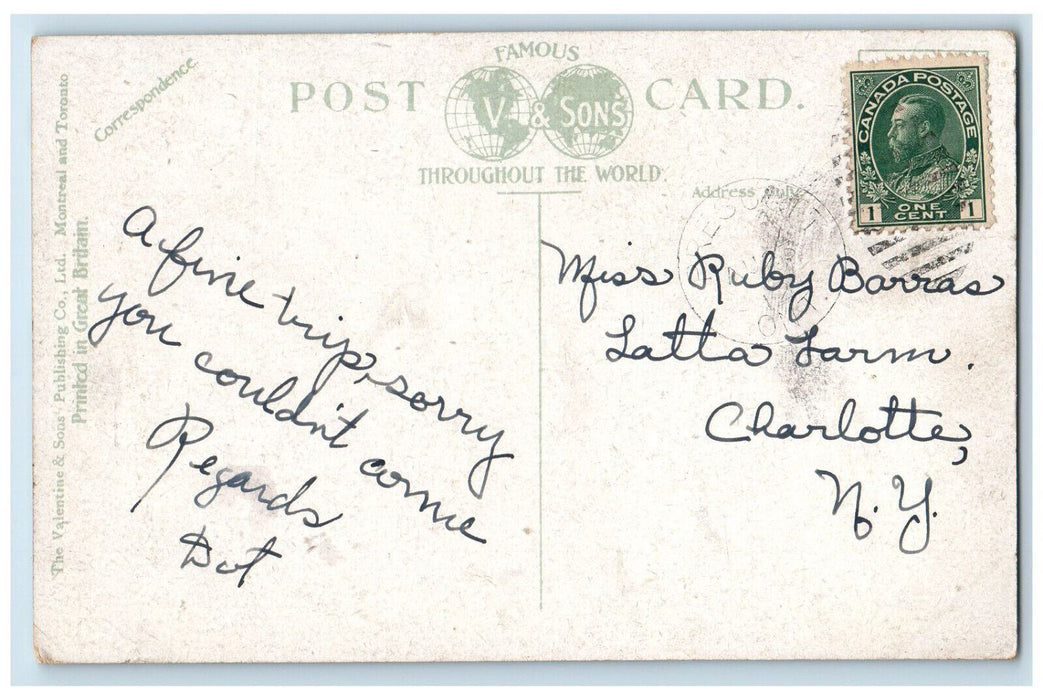 FAMOUS
POST V & SONS CARD.
THROUGHOUT THE WORLD.
Correspondence.
Address Only
The Valentine & Sons' Publishing Co., Ltd. Montreal and Toronto
Printed in Great Britain.
CANADA POSTAGE
1 ONE CENT 1
A fine trip, sorry
you couldn't come
Regards
Dot
Miss Ruby Barras
Latta Farm.
Charlotte,
N.Y.